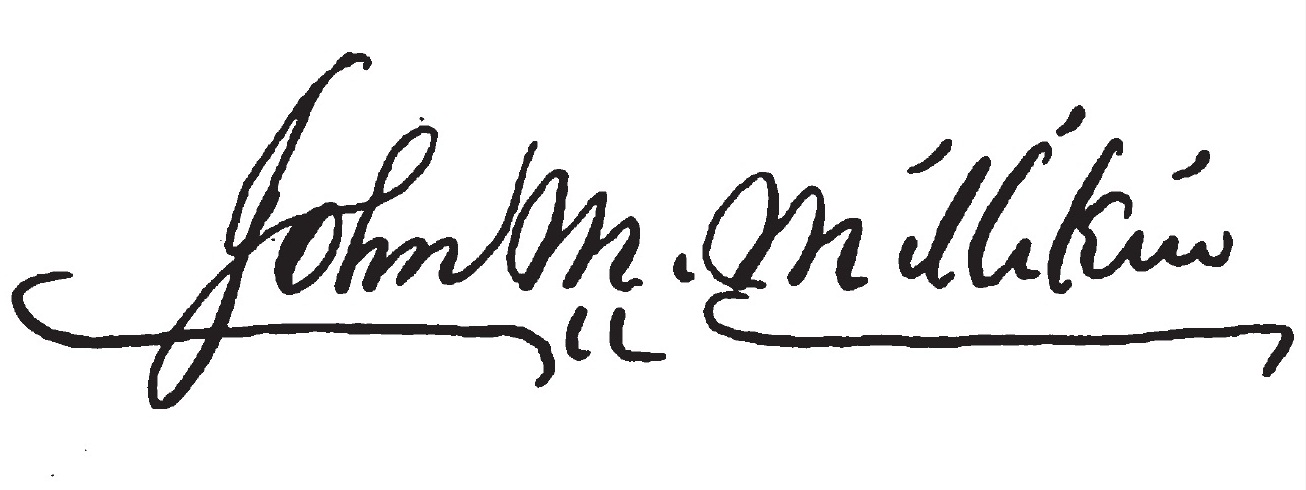 John M. Millikin